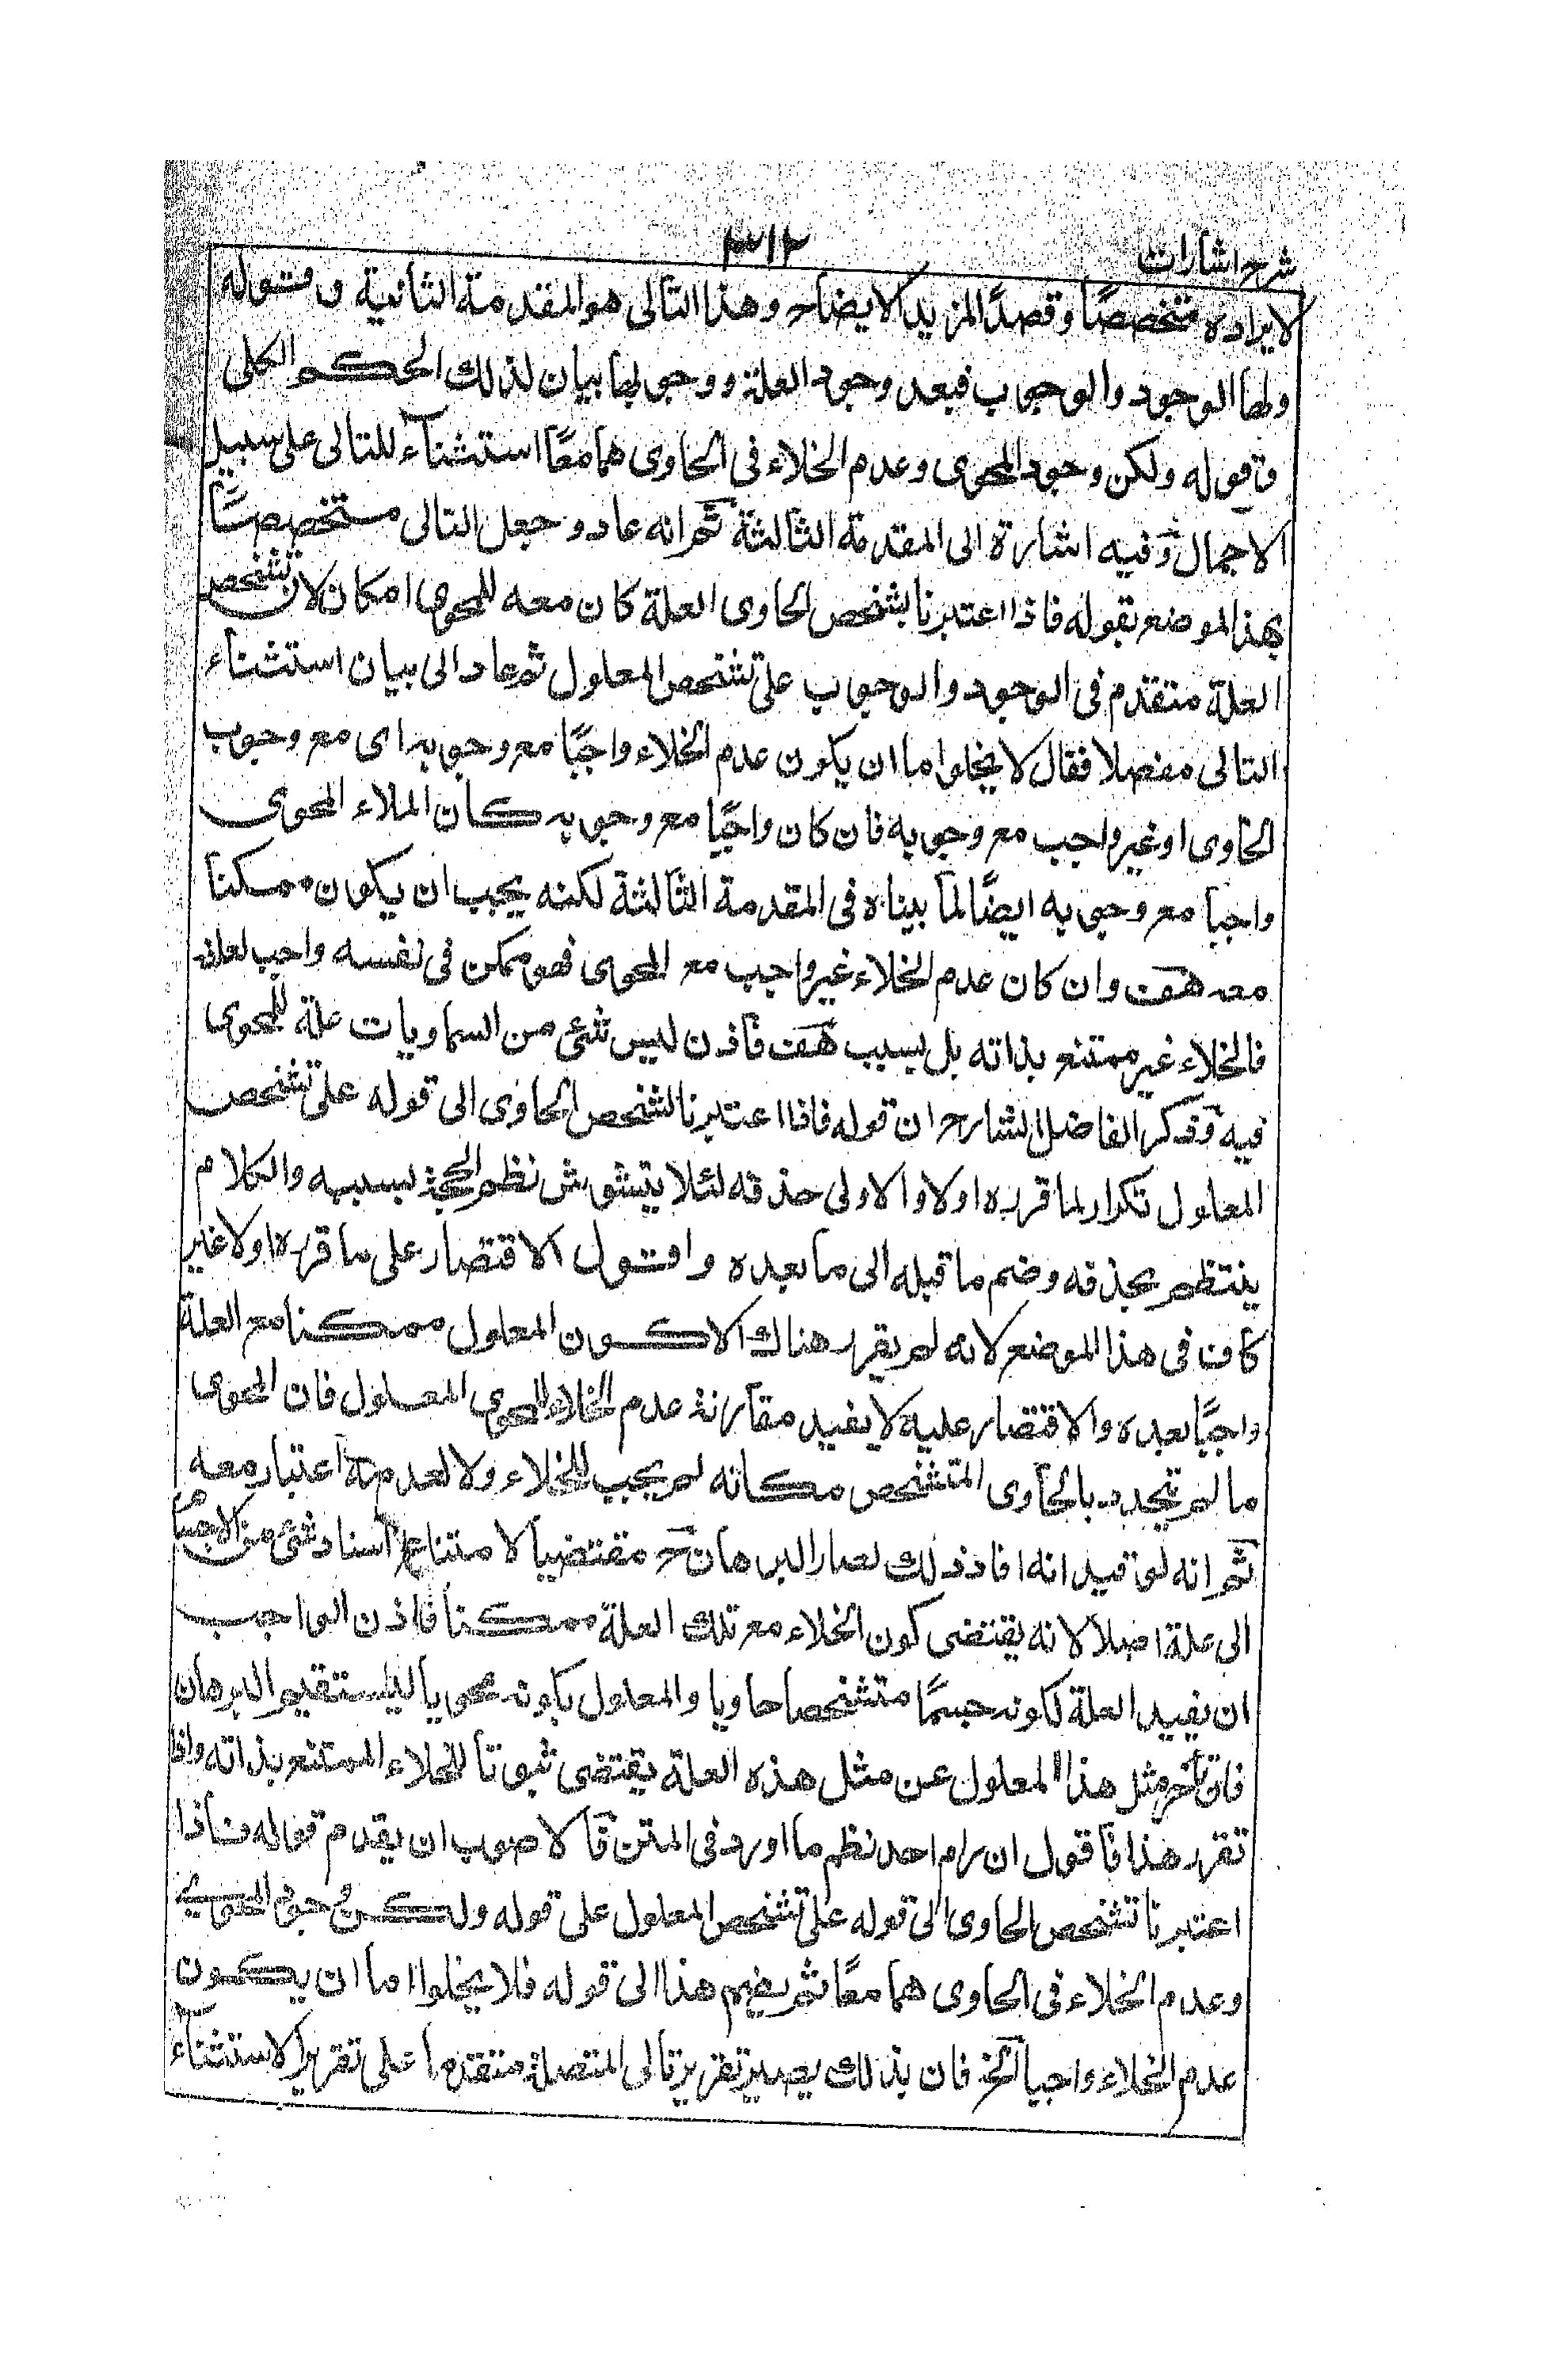 شرح اشارات
٣١٢
لايراده متخصصًا وقصدًا لمزيد الايضاح وهذا التالى هو المقدمة الثانية وقوله
واما الوجود والوجوب فبعد وجود العلة ووجوبها بيان لذلك الحكم الكلى
وقوله ولكن وجود المحوى وعدم الخلاء فى الحاوى هما معًا استثناء للتالى على سبيل
الاجمال وفيه اشارة الى المقدمة الثالثة ثم انه عاد وجعل التالى متخصصًا
بهذا الموضع بقوله فاذا اعتبرنا تشخص الحاوى العلة كان معه للمحوى امكان لان تشخص
العلة متقدم فى الوجود والوجوب على تشخص المعلول ثم عاد الى بيان استثناء
التالى مفصلا فقال لا يخلوا ما ان يكون عدم الخلاء واجبًا مع وجوبه اى مع وجوب
الحاوى او غير واجب مع وجوبه فان كان واجبًا مع وجوبه كان الملاء المحوى
واجبا مع وجوبه ايضًا لما بيناه فى المقدمة الثالثة لكنه يجب ان يكون ممكنا
معه هف وان كان عدم الخلاء غير واجب مع المحوى فهو ممكن فى نفسه واجب لعلة
فالخلاء غير ممتنع بذاته بل بسبب هف فاذن ليس شئ من السماويات علة للمحوى
فيه وذكر الفاضل الشارح ان قوله فاذا اعتبرنا تشخص الحاوى الى قوله على تشخص
المعلول تكرار لما قرره اولا والاولى حذفه لئلا يتشوش نظم الحجة بسببه والكلام
ينتظم بحذفه وضم ما قبله الى ما بعده واقول الاقتصار على ما قرره اولا غير
كاف فى هذا الموضع لانه لم يقرر هناك الا كون المعلول ممكنا مع العلة
واجبًا بعده والاقتصار عليه لا يفيد مقارنة عدم الخلاء للمحوى المعلول فان المحوى
ما لم تتحدد بالحاوى المتشخص مكانه لم يجب للخلاء ولا لعدمه اعتبار معه
ثم انه لو قيد انه افاد ذلك لصار البرهان ح مقتضيا لامتناع اسناد شئ من الاجسام
الى علة اصلا لانه يقتضى كون الخلاء مع تلك العلة ممكنا فاذن الواجب
ان يقيد العلة بكونه جسمًا متشخصا حاويا والمعلول بكونه محويا ليستقيم البرهان
فان تاخر مثل هذا المعلول عن مثل هذه العلة يقتضى ثبوتا للخلاء الممتنع بذاته واذا
تقرر هذا فاقول ان رام احد نظم ما اورد فى المتن فالاصوب ان يقدم قوله فاذا
اعتبرنا تشخص الحاوى الى قوله على تشخص المعلول على قوله ولكن وجود المحوى
وعدم الخلاء فى الحاوى هما معًا ثم يضم هذا الى قوله فلا يخلوا اما ان يكون
عدم الخلاء واجبا الخ فان بذلك يصير تقرير تالى المتصلة متقدما على تقرير الاستثناء